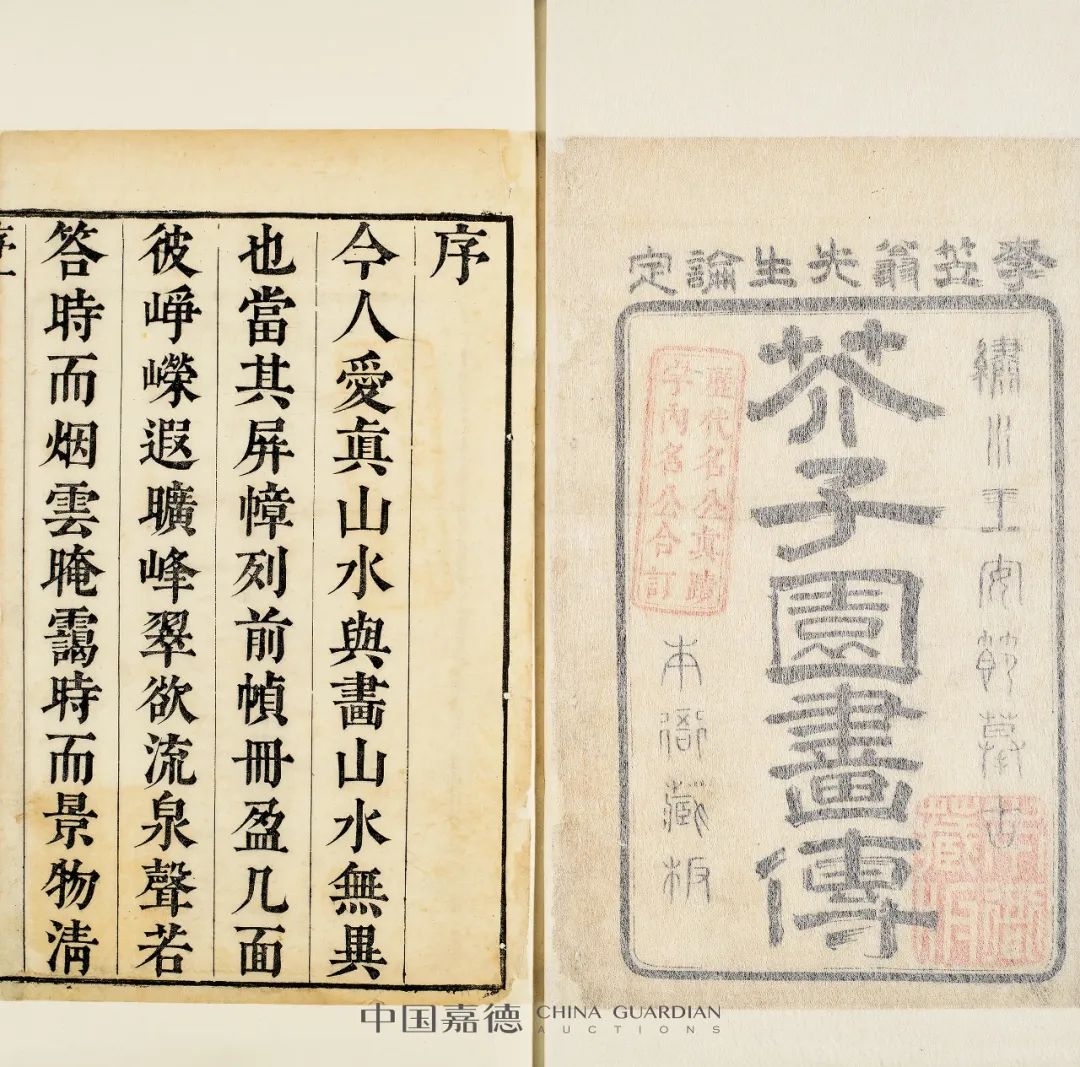 李笠翁先生論定
繡水王安節摹古
芥子園畫傳
歷代名公真
宇內名公合訂
本衙藏板
序
今人愛眞山水與畫山水無異
也當其屏幛列前幀冊盈几面
彼崢嶸遐曠峰翠欲流泉聲若
答時而烟雲晻靄時而景物淸
中国嘉德 CHINA GUARDIAN
AUCTIONS